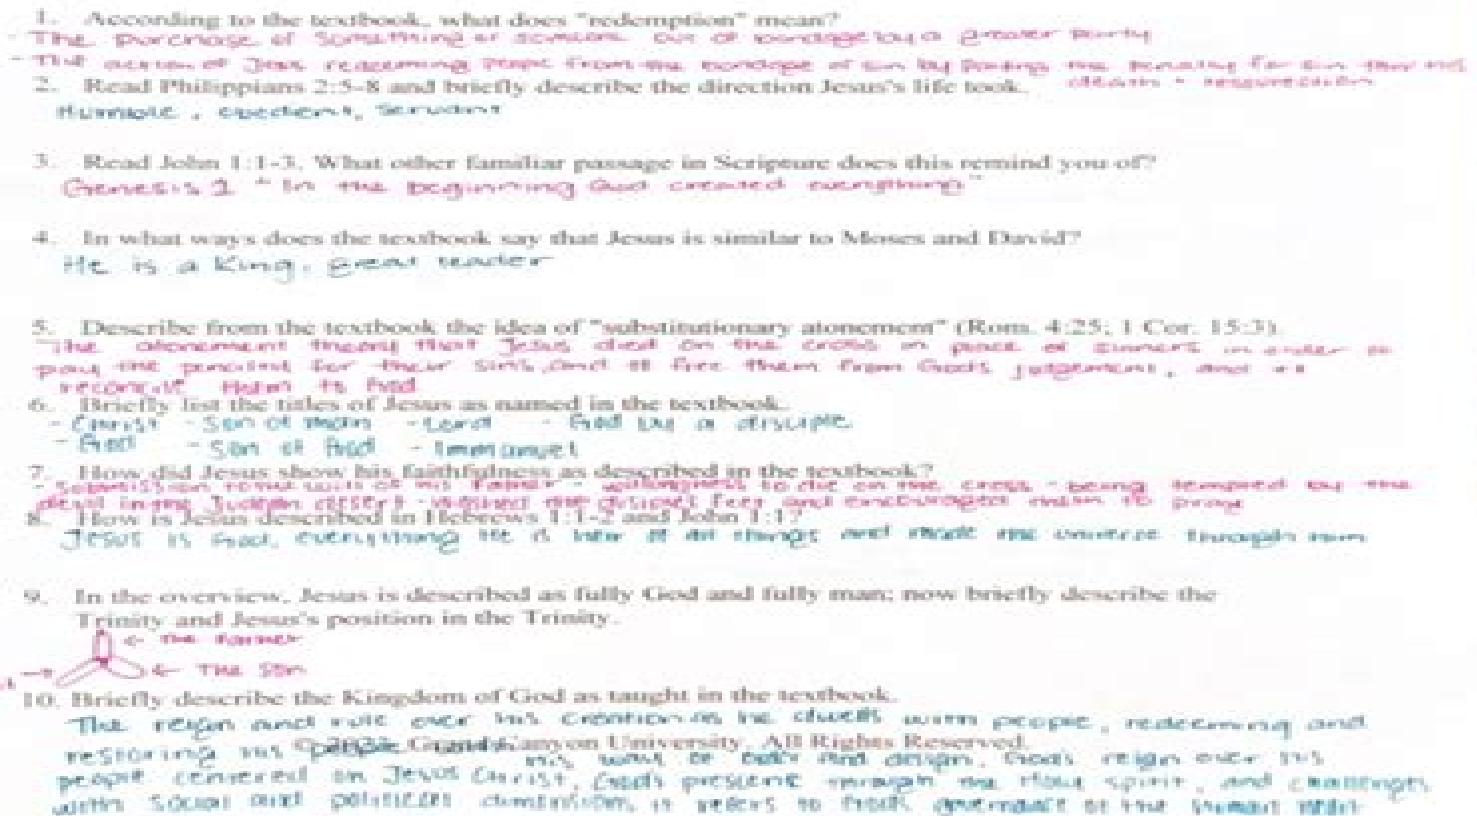 1. According to the textbook, what does "redemption" mean?
- The purchase of something or someone out of bondage by a greater party
- The action of Jesus redeeming people from the bondage of sin by paying the penalty for sin thru his
death + resurrection
2. Read Philippians 2:5-8 and briefly describe the direction Jesus's life took.
Humble, obedient, Servant
3. Read John 1:1-3. What other familiar passage in Scripture does this remind you of?
Genesis 1 "In the beginning God created everything"
4. In what ways does the textbook say that Jesus is similar to Moses and David?
He is a King, great leader
5. Describe from the textbook the idea of "substitutionary atonement" (Rom. 4:25; 1 Cor. 15:3).
The atonement theory that Jesus died on the cross in place of sinners in order to
pay the for their sins, and to free them from God's judgement, and to
reconcile them to God
6. Briefly list the titles of Jesus as named in the textbook.
- Christ - Son of man - Lord - God by a disciple
- God - Son of God - Immanuel
7. How did Jesus show his faithfulness as described in the textbook?
- Submission to the will of his Father - willingness to die on the cross - being tempted by the
devil in the desert - washed the feet and encouraged them to pray
8. How is Jesus described in Hebrews 1:1-2 and John 1:1?
Jesus is God, everything He is heir of all things and made the universe through him
9. In the overview, Jesus is described as fully God and fully man; now briefly describe the
Trinity and Jesus's position in the Trinity.
← The Father
← The Son
10. Briefly describe the Kingdom of God as taught in the textbook.
The reign and rule over his creation as he dwells with people, redeeming and
restoring his people
Grand Canyon University. All Rights Reserved.
his way of and design, God's reign over his
people centered on Jesus Christ, God's presence through the Holy spirit, and challenges
with social and political dimensions, it refers to God's governance of the human heart